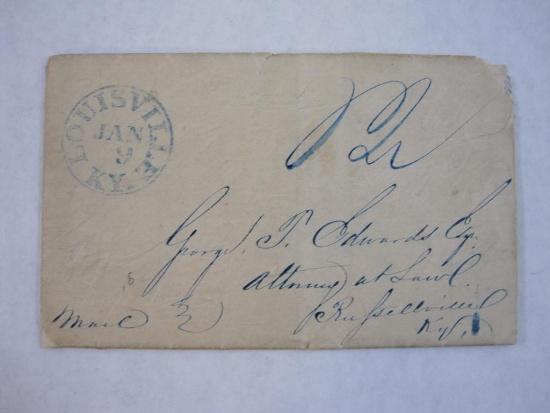 LOUISVILLE
JAN
9
KY.
George. T. Edwards Esq.
Attorney at Law.
Russellville
Mail
Ky.